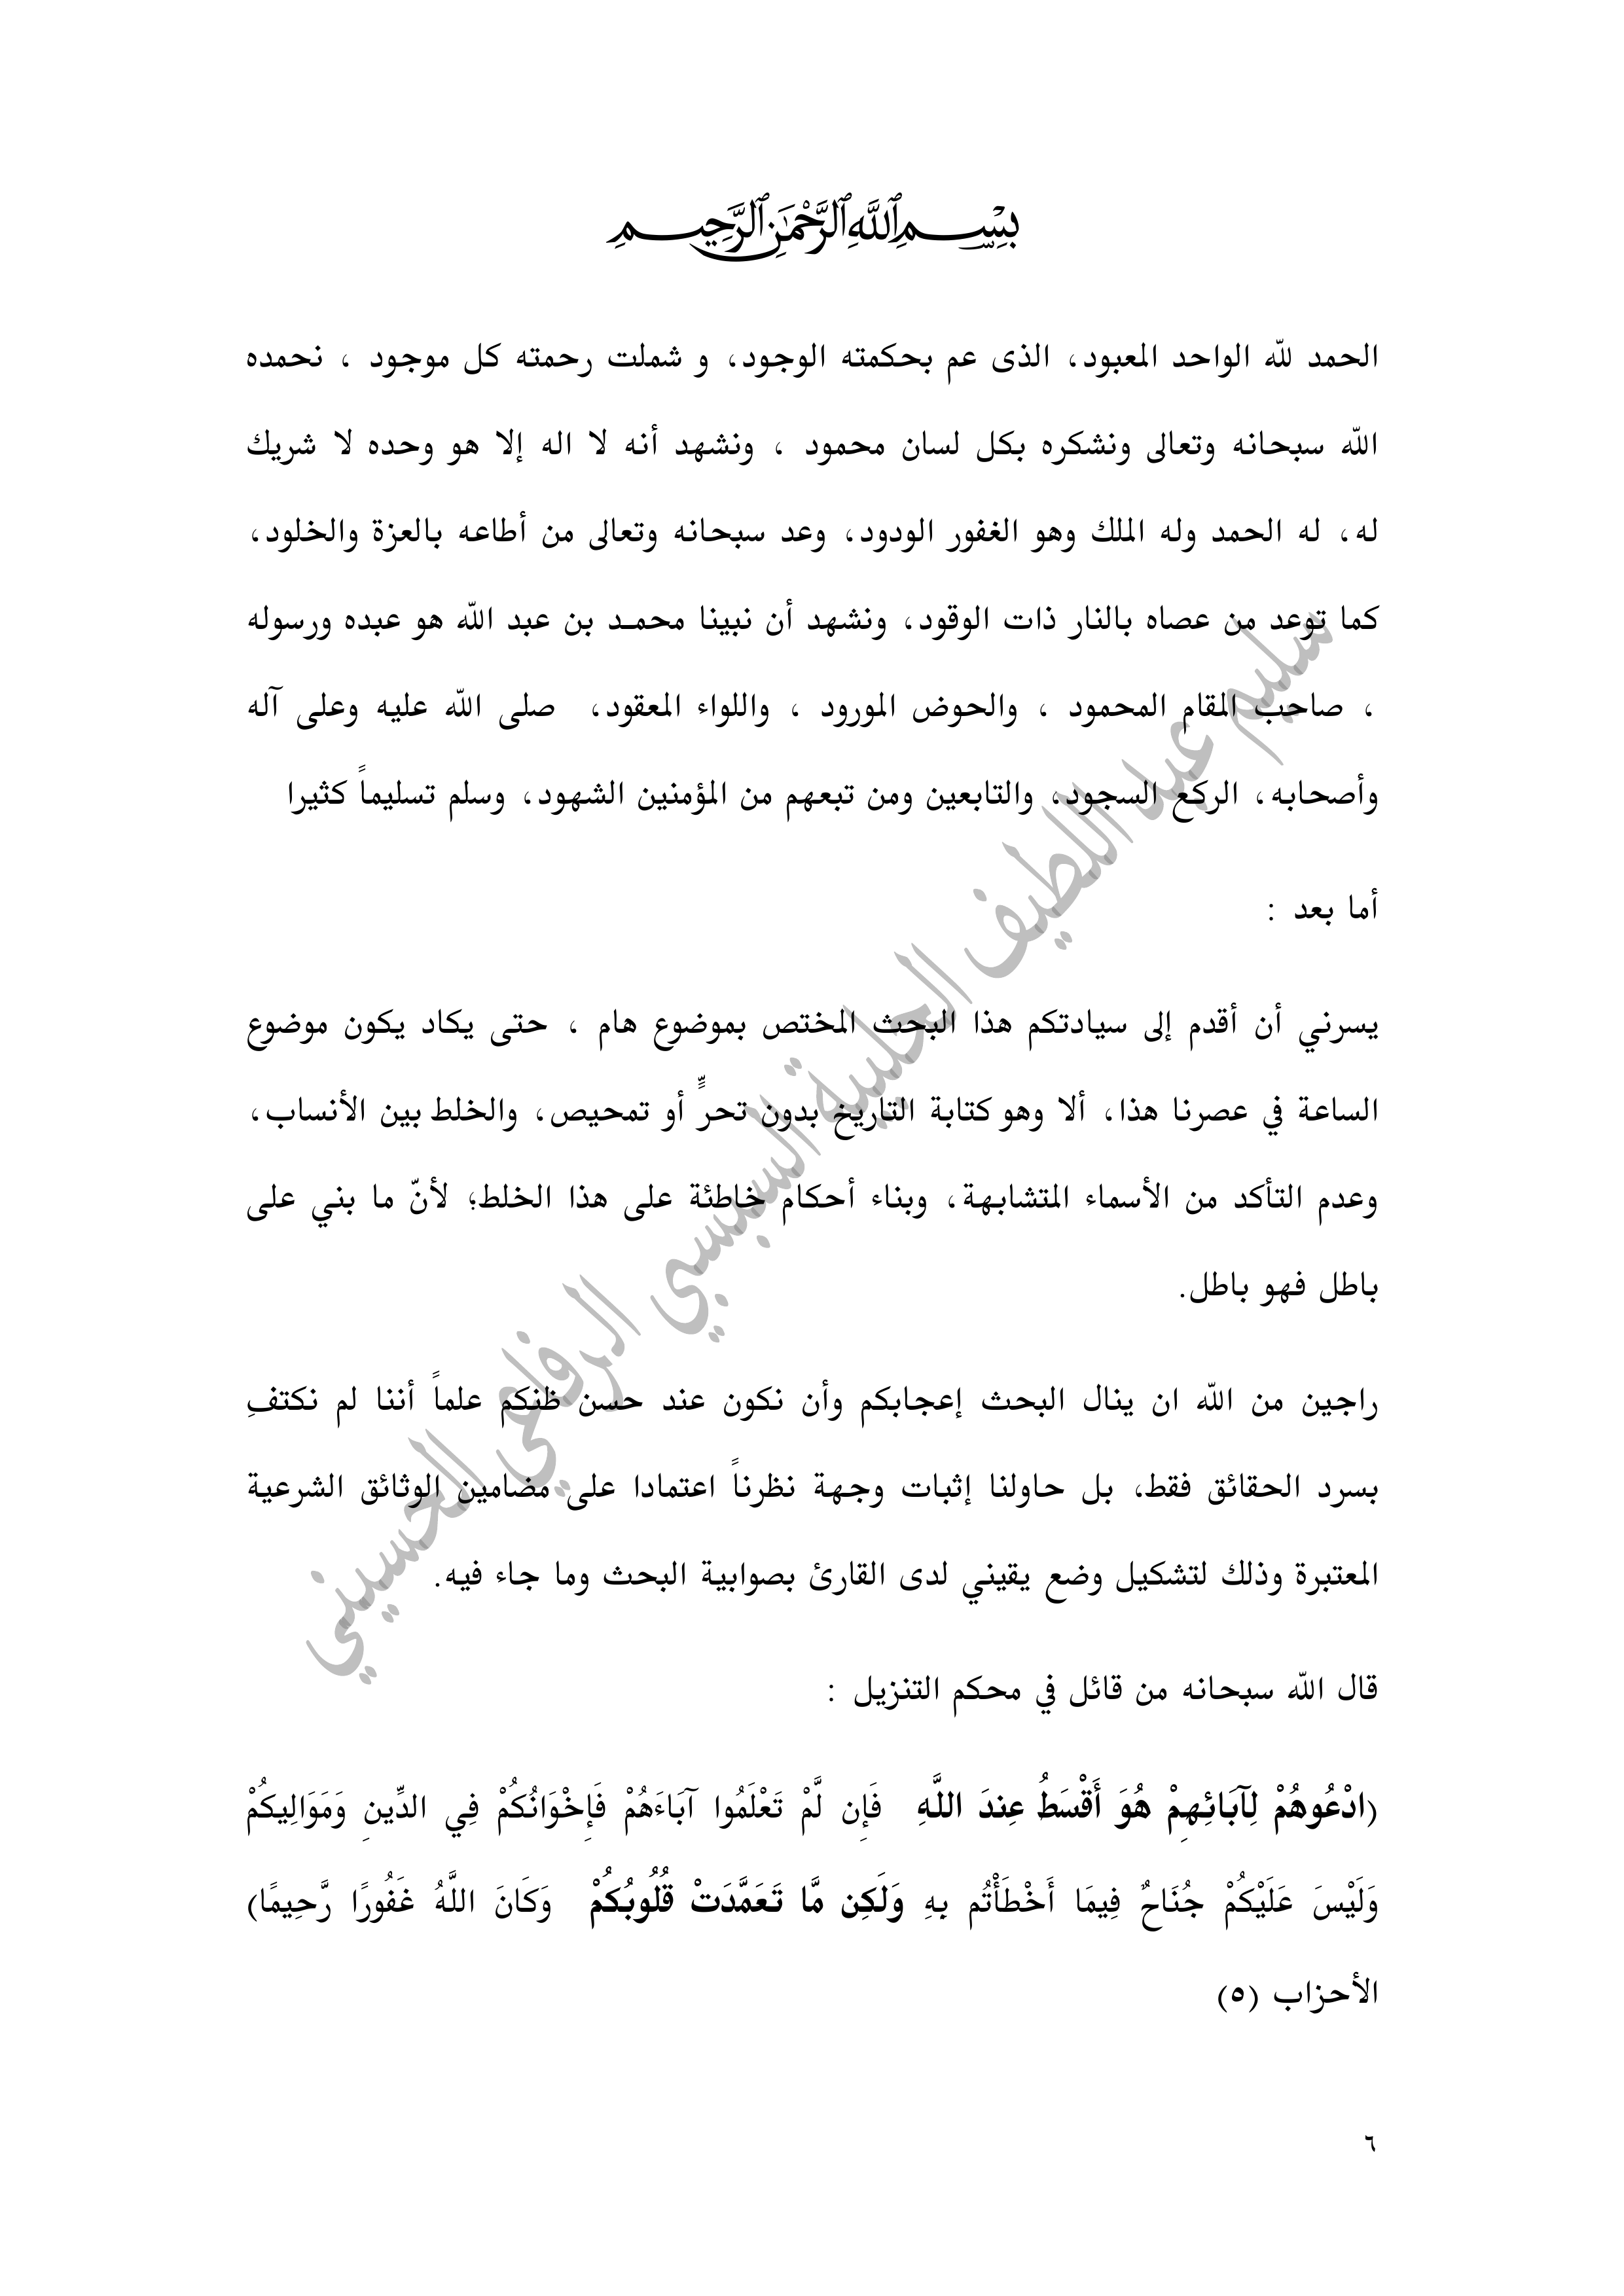 بِسْمِ ٱللَّهِ ٱلرَّحْمَٰنِ ٱلرَّحِيمِ
الحمد لله الواحد المعبود، الذى عم بحكمته الوجود، و شملت رحمته كل موجود ، نحمده
الله سبحانه وتعالى ونشكره بكل لسان محمود ، ونشهد أنه لا اله إلا هو وحده لا شريك
له، له الحمد وله الملك وهو الغفور الودود، وعد سبحانه وتعالى من أطاعه بالعزة والخلود،
كما توعد من عصاه بالنار ذات الوقود، ونشهد أن نبينا محمـد بن عبد الله هو عبده ورسوله
، صاحب المقام المحمود ، والحوض المورود ، واللواء المعقود، صلى الله عليه وعلى آله
وأصحابه، الركع السجود، والتابعين ومن تبعهم من المؤمنين الشهود، وسلم تسليماً كثيرا
أما بعد :
يسرني أن أقدم إلى سيادتكم هذا البحث المختص بموضوع هام ، حتى يكاد يكون موضوع
الساعة في عصرنا هذا، ألا وهو كتابة التاريخ بدون تحرٍّ أو تمحيص، والخلط بين الأنساب،
وعدم التأكد من الأسماء المتشابهة، وبناء أحكام خاطئة على هذا الخلط؛ لأنّ ما بني على
باطل فهو باطل.
راجين من الله ان ينال البحث إعجابكم وأن نكون عند حسن ظنكم علماً أننا لم نكتفِ
بسرد الحقائق فقط، بل حاولنا إثبات وجهة نظرناً اعتمادا على مضامين الوثائق الشرعية
المعتبرة وذلك لتشكيل وضع يقيني لدى القارئ بصوابية البحث وما جاء فيه.
قال الله سبحانه من قائل في محكم التنزيل :
(ادْعُوهُمْ لِآبَائِهِمْ هُوَ أَقْسَطُ عِندَ اللَّهِ فَإِن لَّمْ تَعْلَمُوا آبَاءَهُمْ فَإِخْوَانُكُمْ فِي الدِّينِ وَمَوَالِيكُمْ
وَلَيْسَ عَلَيْكُمْ جُنَاحٌ فِيمَا أَخْطَأْتُم بِهِ وَلَكِن مَّا تَعَمَّدَتْ قُلُوبُكُمْ وَكَانَ اللَّهُ غَفُورًا رَّحِيمًا)
الأحزاب (٥)
٦
سليم عبد اللطيف الحلبية السبسبي الرفاعي الحسيني